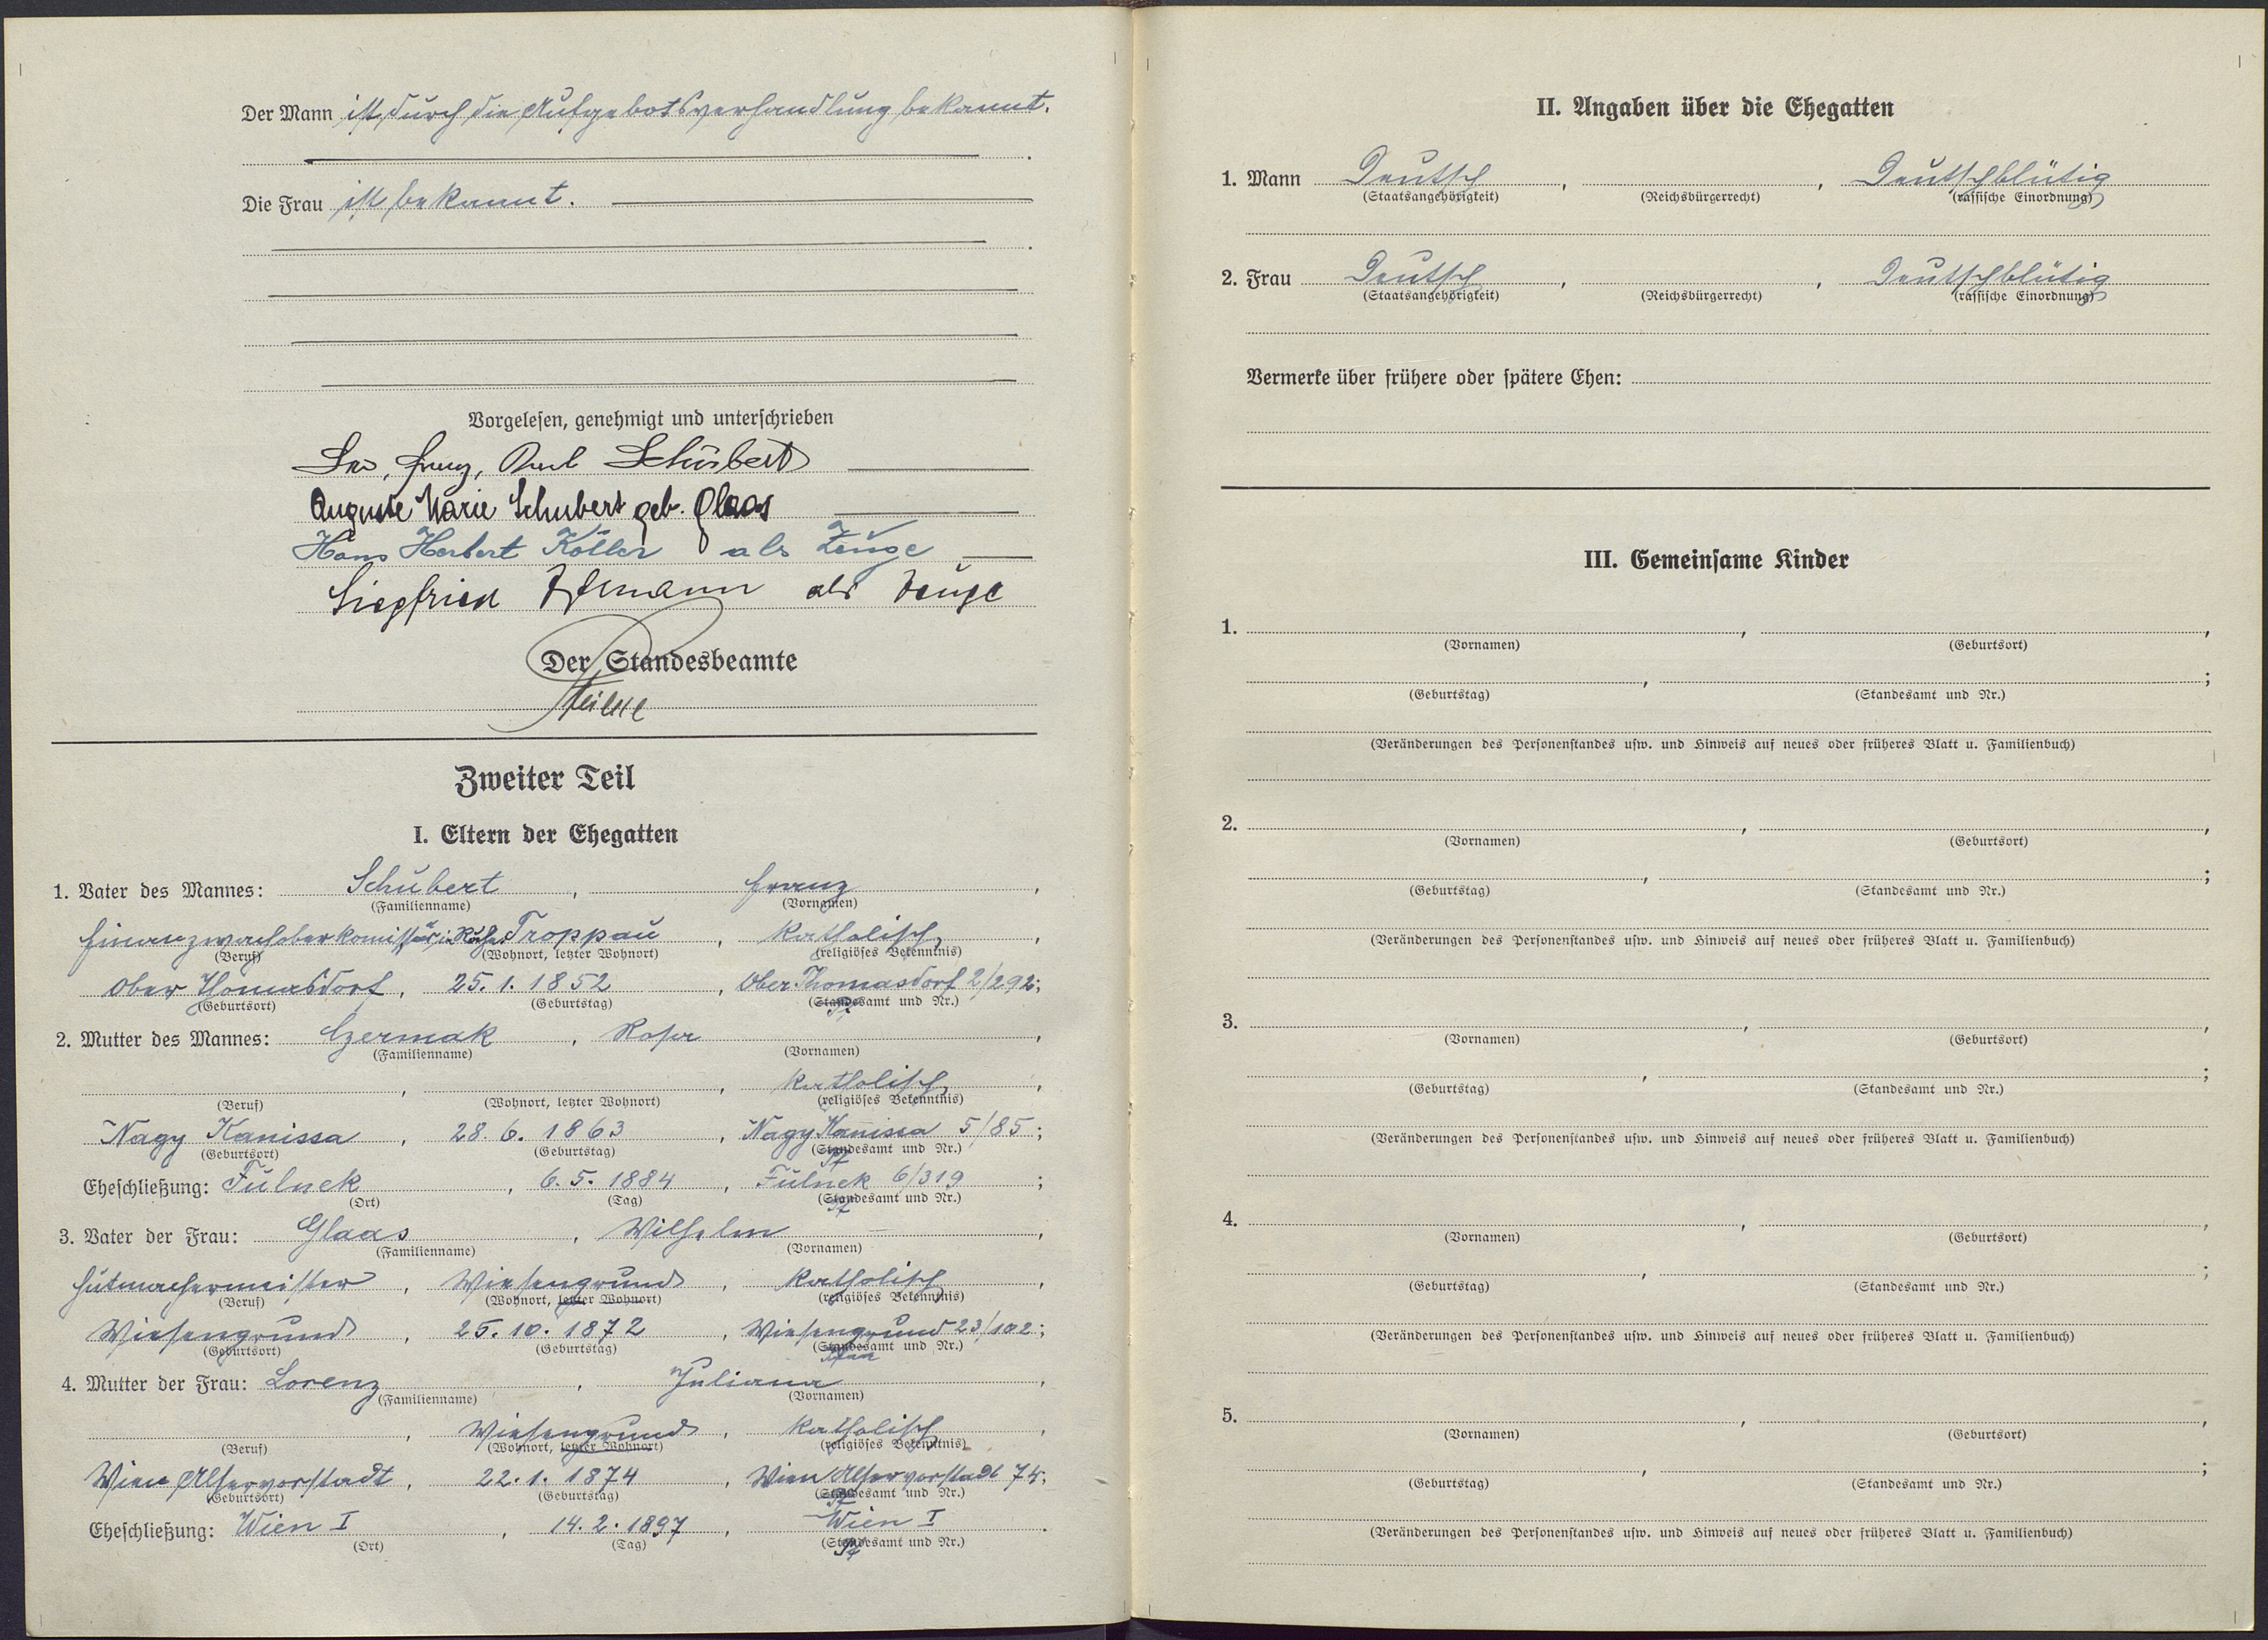 Der Mann ist durch die Aufgebotsverhandlung bekannt.
Die Frau ist bekannt.
Vorgelesen, genehmigt und unterschrieben
Leo, Franz, Karl Schubert
Auguste Marie Schubert geb. Glaas
Hans Herbert Köller als Zeuge
Siegfried als Zeuge
Der Standesbeamte
Zweiter Teil
I. Eltern der Ehegatten
1. Vater des Mannes: Schubert, Franz,
(Familienname) (Vornamen)
Finanzwachoberkomissär i. Ruhe, Troppau, katholisch,
(Beruf) (Wohnort, letzter Wohnort) (religiöses Bekenntnis)
Ober Thomasdorf, 25.1.1852, Ober Thomasdorf 2/292;
(Geburtsort) (Geburtstag) (Standesamt und Nr.)
2. Mutter des Mannes: Czermak, Rosa,
(Familienname) (Vornamen)
, , katholisch,
(Beruf) (Wohnort, letzter Wohnort) (religiöses Bekenntnis)
Nagy Kanissa, 28.6.1863, Nagy Kanissa 5/85;
(Geburtsort) (Geburtstag) (Standesamt und Nr.)
Eheschließung: Fulnek, 6.5.1884, Fulnek 6/319;
(Ort) (Tag) (Standesamt und Nr.)
3. Vater der Frau: Glaas, Wilhelm,
(Familienname) (Vornamen)
Hutmachermeister, Wiesengrund, katholisch,
(Beruf) (Wohnort, letzter Wohnort) (religiöses Bekenntnis)
Wiesengrund, 25.10.1872, Wiesengrund 23/102;
(Geburtsort) (Geburtstag) (Standesamt und Nr.)
4. Mutter der Frau: Lorenz, Juliana,
(Familienname) (Vornamen)
, Wiesengrund, katholisch,
(Beruf) (Wohnort, letzter Wohnort) (religiöses Bekenntnis)
Wien Alservorstadt, 22.1.1874, Wien Alservorstadt 74;
(Geburtsort) (Geburtstag) (Standesamt und Nr.)
Eheschließung: Wien I, 14.2.1897, Wien I.
(Ort) (Tag) (Standesamt und Nr.)
II. Angaben über die Ehegatten
1. Mann Deutsch, , Deutschblütig
(Staatsangehörigkeit) (Reichsbürgerrecht) (rassische Einordnung)
2. Frau Deutsch, , Deutschblütig
(Staatsangehörigkeit) (Reichsbürgerrecht) (rassische Einordnung)
Vermerke über frühere oder spätere Ehen:
III. Gemeinsame Kinder
1. , ,
(Vornamen) (Geburtsort)
, ;
(Geburtstag) (Standesamt und Nr.)
(Veränderungen des Personenstandes usw. und Hinweis auf neues oder früheres Blatt u. Familienbuch)
2. , ,
(Vornamen) (Geburtsort)
, ;
(Geburtstag) (Standesamt und Nr.)
(Veränderungen des Personenstandes usw. und Hinweis auf neues oder früheres Blatt u. Familienbuch)
3. , ,
(Vornamen) (Geburtsort)
, ;
(Geburtstag) (Standesamt und Nr.)
(Veränderungen des Personenstandes usw. und Hinweis auf neues oder früheres Blatt u. Familienbuch)
4. , ,
(Vornamen) (Geburtsort)
, ;
(Geburtstag) (Standesamt und Nr.)
(Veränderungen des Personenstandes usw. und Hinweis auf neues oder früheres Blatt u. Familienbuch)
5. , ,
(Vornamen) (Geburtsort)
, ;
(Geburtstag) (Standesamt und Nr.)
(Veränderungen des Personenstandes usw. und Hinweis auf neues oder früheres Blatt u. Familienbuch)